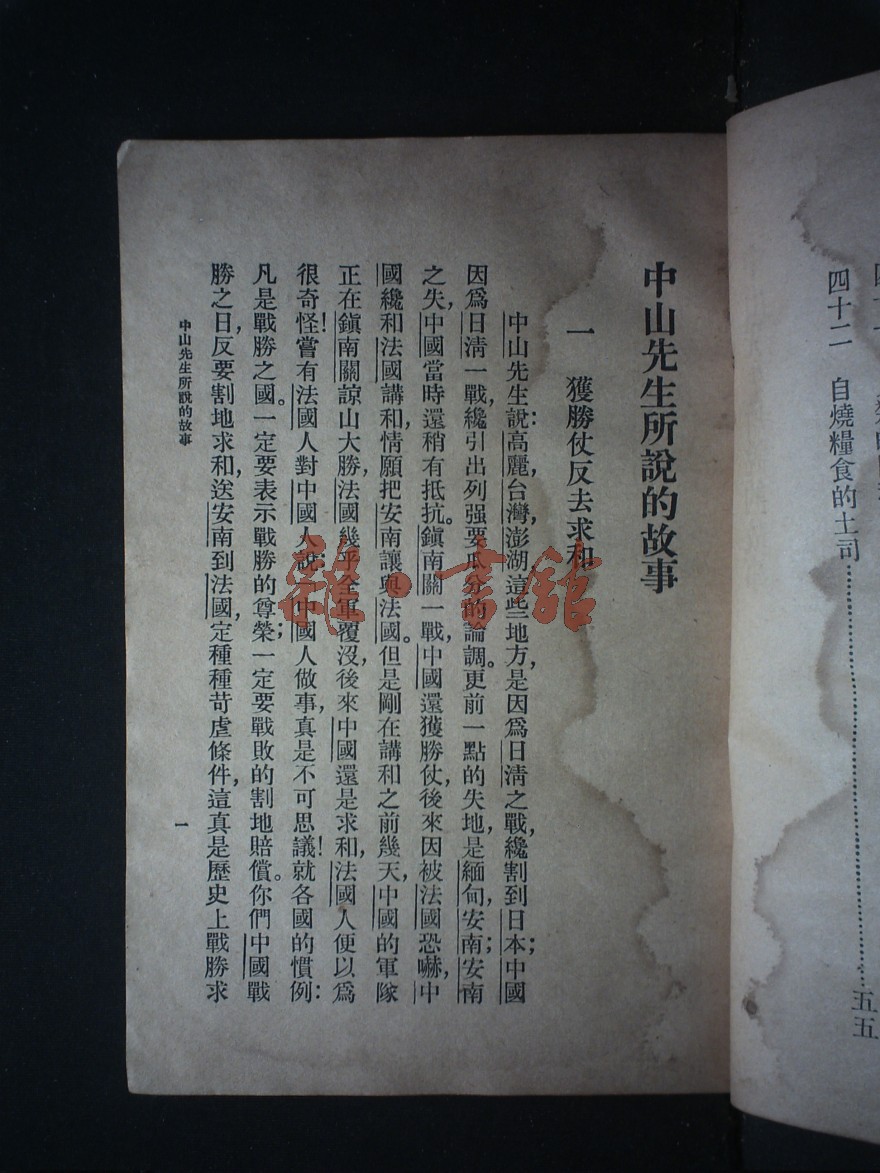 四十二　自燒糧食的土司……五五
中山先生所說的故事
一　獲勝仗反去求和
中山先生說：高麗，台灣，澎湖這些地方，是因爲日清之戰，纔割到日本；中國
因爲日淸一戰，纔引出列强要瓜分的論調。更前一點的失地，是緬甸，安南；安南
之失，中國當時還稍有抵抗。鎭南關一戰，中國還獲勝仗，後來因被法國恐嚇，中
國纔和法國講和，情願把安南讓與法國。但是剛在講和之前幾天，中國的軍隊
正在鎭南關諒山大勝，法國幾乎全軍覆沒，後來中國還是求和，法國人便以爲
很奇怪！嘗有法國人對中國人說：「中國人做事，眞是不可思議！就各國的慣例：
凡是戰勝之國。一定要表示戰勝的尊榮；一定要戰敗的割地賠償。你們中國戰
勝之日，反要割地求和，送安南到法國，定種種苛虐條件，這真是歷史上戰勝求
中山先生所說的故事
一
雜·書館